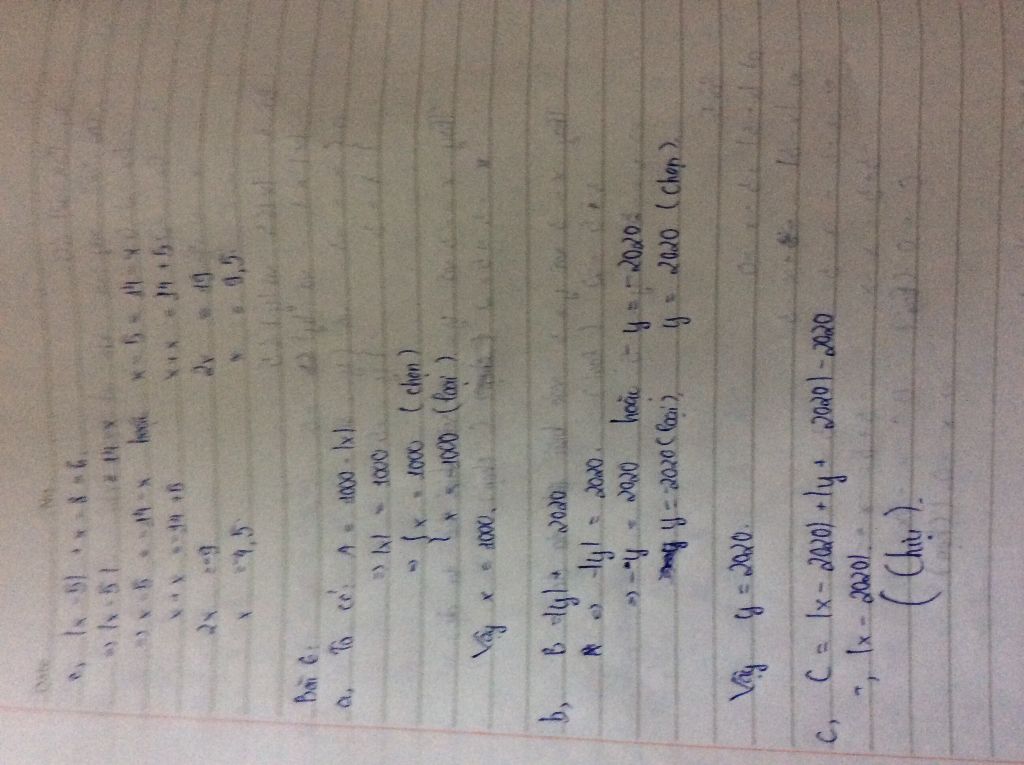 a, |x - 5| + x - 8 = 6
=> |x - 5| = 14 - x
=> x - 5 = -14 - x hoặc x - 5 = 14 - x
x + x = -14 + 5 x + x = 14 + 5
2x = -9 2x = 19
x = -4,5 x = 9,5
Bài 6:
a, Ta có: A = 1000 - |x|
=> |x| = 1000
=> { x = 1000 (chọn)
{ x = -1000 (loại)
Vậy x = 1000.
b, B = |y| + 2020
=> -|y| = 2020.
=> -y = 2020 hoặc - y = -2020.
y = -2020 (loại) y = 2020 (chọn).
Vậy y = 2020.
c, C = |x - 2020| + |y + 2020| - 2020
|x - 2020|.
((hịu).